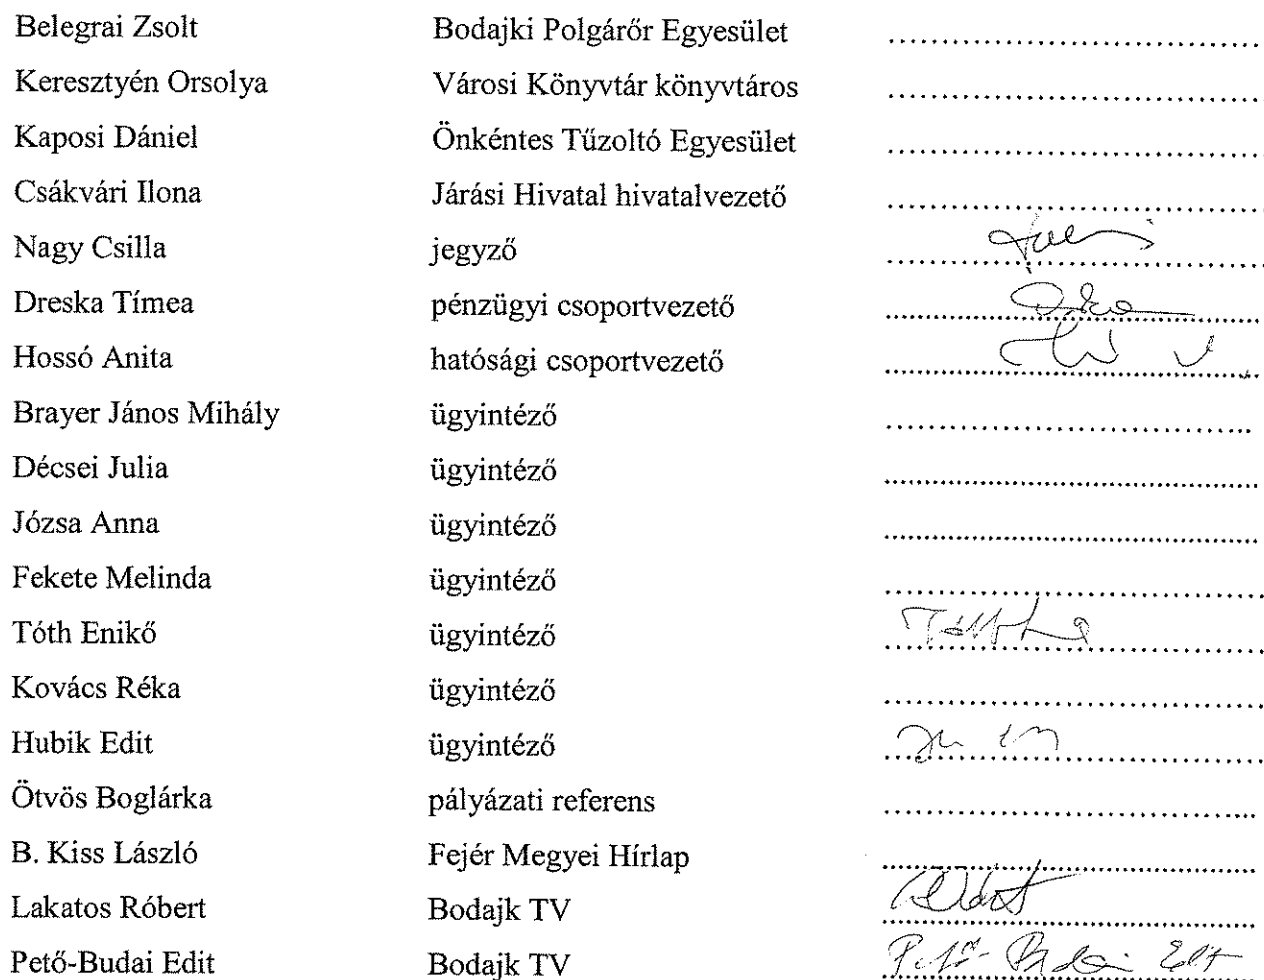 Belegrai Zsolt Bodajki Polgárőr Egyesület ........................................
Keresztyén Orsolya Városi Könyvtár könyvtáros ........................................
Kaposi Dániel Önkéntes Tűzoltó Egyesület ........................................
Csákvári Ilona Járási Hivatal hivatalvezető ........................................
Nagy Csilla jegyző ........................................
Dreska Tímea pénzügyi csoportvezető ........................................
Hossó Anita hatósági csoportvezető ........................................
Brayer János Mihály ügyintéző ........................................
Décsei Julia ügyintéző ........................................
Józsa Anna ügyintéző ........................................
Fekete Melinda ügyintéző ........................................
Tóth Enikő ügyintéző ........................................
Kovács Réka ügyintéző ........................................
Hubik Edit ügyintéző ........................................
Ötvös Boglárka pályázati referens ........................................
B. Kiss László Fejér Megyei Hírlap ........................................
Lakatos Róbert Bodajk TV ........................................
Pető-Budai Edit Bodajk TV Pető-Budai Edit